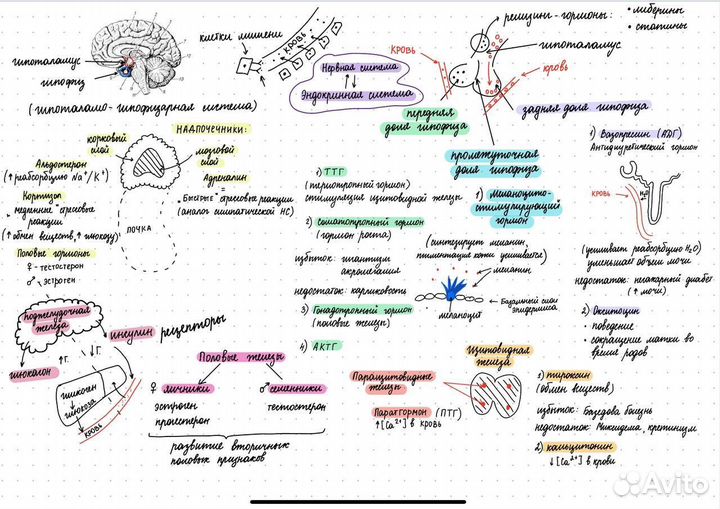 клетки мишени
кровь
гипоталамус
гипофиз
(гипоталамо-гипофизарная система)
Нервная система
Эндокринная система
рилизинг-гормоны:
• либерины
• статины
гипоталамус
кровь
кровь
передняя
доля гипофиза
задняя доля гипофиза
промежуточная
доля гипофиза
НАДПОЧЕЧНИКИ:
корковый
слой
мозговой
слой
Альдостерон
(↑ реабсорбцию Na⁺/K⁺)
Адреналин
Кортизол
медленные стресовые
реакции
(↑ обмен веществ, ↑ глюкозу)
• "Быстрые" стресовые реакции
(аналог симпатической НС)
Половые гормоны
♀ - тестостерон
♂ - эстроген
ПОЧКА
1) ТТГ
(тиреотропный гормон)
стимуляция щитовидной железы
2) Соматотропный гормон
(гормон роста)
избыток: гигантизм
акромегалия
недостаток: карликовость
3) Гонадотропный гормон
(половые железы)
4) АКТГ
1) Меланоцито-
стимулирующий
гормон
(синтезирует меланин,
пигментация кожи усиливается)
меланин
меланоцит
Базальный слой
эпидермиса
1) Вазопрессин (АДГ)
Антидиуретический гормон
кровь
H₂O
(усиливает реабсорбцию H₂O)
уменьшает объем мочи
недостаток: несахарный диабет
(↑ мочи)
2) Окситоцин
• поведение
• сокращение матки во
время родов
поджелудочная
железа
инсулин
рецепторы
глюкагон
↑Г.
↓Г.
гликоген
глюкоза
кровь
Половые железы
♀ яичники
♂ семенники
эстроген
прогестерон
тестостерон
развитие вторичных
половых признаков
Паращитовидные
железы
Щитовидная
железа
Паратгормон (ПТГ)
↑[Ca²⁺] в кровь
1) тироксин
(обмен веществ)
избыток: Базедова болезнь
недостаток: Микседема, кретинизм
2) кальцитонин
↓[Ca²⁺] в крови
Avito